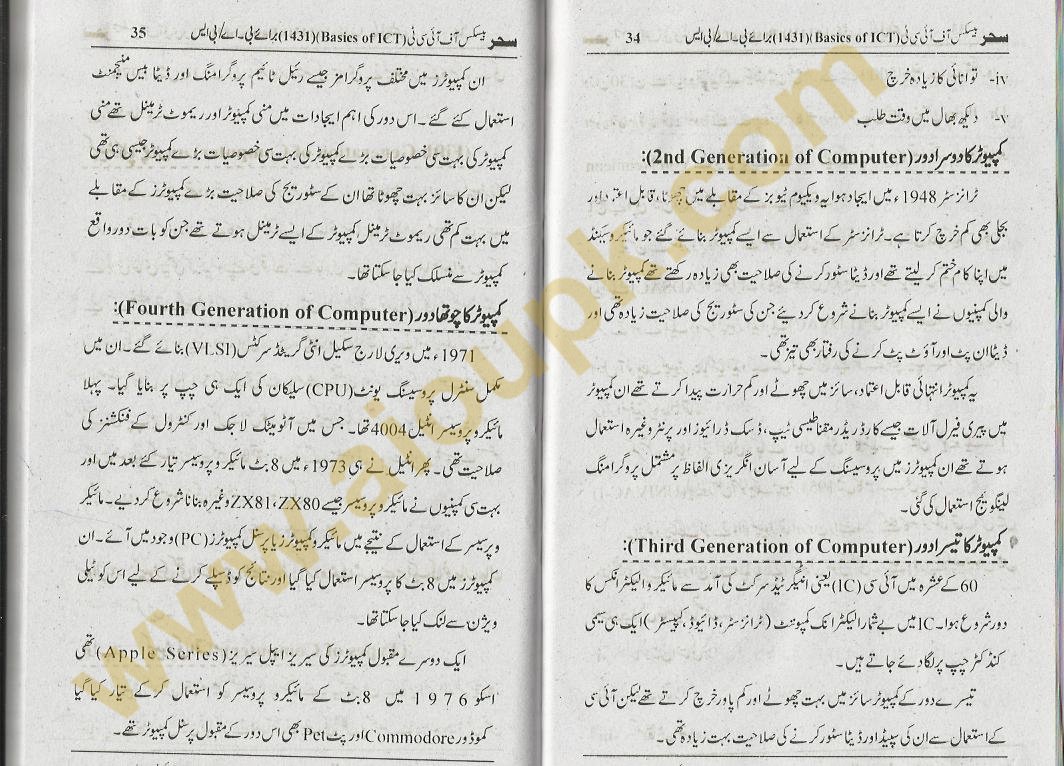 سحر بیسکس آف آئی سی ٹی (Basics of ICT)(1431) برائے بی۔اے/بی ایس 34
iv- توانائی کا زیادہ خرچ
v- دیکھ بھال میں وقت طلب
کمپیوٹر کا دوسرا دور (2nd Generation of Computer):
ٹرانزسٹر 1948ء میں ایجاد ہوا یہ ویکیوم ٹیوبز کے مقابلے میں چھوٹا، قابل اعتماد اور
بجلی بھی کم خرچ کرتا ہے۔ ٹرانزسٹر کے استعمال سے ایسے کمپیوٹر بنائے گئے جو مائیکرو سیکنڈ
میں اپنا کام ختم کر لیتے تھے اور ڈیٹا سٹور کرنے کی صلاحیت بھی زیادہ رکھتے تھے کمپیوٹر بنانے
والی کمپنیوں نے ایسے کمپیوٹر بنانے شروع کر دیئے جن کی سٹوریج کی صلاحیت زیادہ تھی اور
ڈیٹا ان پٹ اور آؤٹ پٹ کرنے کی رفتار بھی تیز تھی۔
یہ کمپیوٹر انتہائی قابل اعتماد، سائز میں چھوٹے اور کم حرارت پیدا کرتے تھے ان کمپیوٹر
میں پیری فیرل آلات جیسے کارڈ ریڈر مقناطیسی ٹیپ، ڈسک ڈرائیوز اور پرنٹر وغیرہ استعمال
ہوتے تھے ان کمپیوٹرز میں پروسیسنگ کے لیے آسان انگریزی الفاظ پر مشتمل پروگرامنگ
لینگویج استعمال کی گئی۔
کمپیوٹر کا تیسرا دور (Third Generation of Computer):
60 کے عشرہ میں آئی سی (IC) یعنی انٹیگریٹڈ سرکٹ کی آمد سے مائیکرو الیکٹرانکس کا
دور شروع ہوا۔ IC میں بے شمار الیکٹرانک کمپوننٹ (ٹرانزسٹر، ڈائیوڈ، کپیسٹر) ایک ہی سیمی
کنڈکٹر چپ پر لگا دیے جاتے ہیں۔
تیسرے دور کے کمپیوٹر سائز میں بہت چھوٹے اور کم پاور خرچ کرتے تھے لیکن آئی سی
کے استعمال سے ان کی سپیڈ اور ڈیٹا سٹور کرنے کی صلاحیت بہت زیادہ تھی۔
سحر بیسکس آف آئی سی ٹی (Basics of ICT)(1431) برائے بی۔اے/بی ایس 35
ان کمپیوٹرز میں مختلف پروگرامز جیسے رئیل ٹائیم پروگرامنگ اور ڈیٹا بیس منیجمنٹ
استعمال کئے گئے۔ اس دور کی اہم ایجادات میں منی کمپیوٹر اور ریموٹ ٹرمینل تھے منی
کمپیوٹر کی بہت سی خصوصیات بڑے کمپیوٹر کی بہت سی خصوصیات بڑے کمپیوٹر جیسی ہی تھی
لیکن ان کا سائز بہت چھوٹا تھا ان کے سٹوریج کی صلاحیت بڑے کمپیوٹرز کے مقابلے
میں بہت کم تھی ریموٹ ٹرمینل کمپیوٹر کے ایسے ٹرمینل ہوتے تھے جن کو بات دور واقع
کمپیوٹر سے منسلک کیا جا سکتا تھا۔
کمپیوٹر کا چوتھا دور (Fourth Generation of Computer):
1971ء میں ویری لارج سکیل انٹی گریٹڈ سرکٹس (VLSI) بنائے گئے۔ ان میں
مکمل سنٹرل پروسیسنگ یونٹ (CPU) سلیکان کی ایک ہی چپ پر بنایا گیا۔ پہلا
مائیکرو پروسیسر انٹیل 4004 تھا۔ جس میں آٹو میٹک لاجک اور کنٹرول کے فنکشنز کی
صلاحیت تھی۔ پھر انٹیل نے ہی 1973ء میں 8 بٹ مائیکرو پروسیسر تیار کئے بعد میں اور
بہت سی کمپنیوں نے مائیکرو پروسیسر جیسے ZX80، ZX81 وغیرہ بنانا شروع کر دیے۔ مائیکر
و پرسیسر کے استعمال کے نتیجے میں مائیکرو کمپیوٹرز یا پرسنل کمپیوٹرز (PC) وجود میں آئے۔ ان
کمپیوٹرز میں 8 بٹ کا پروسیسر استعمال کیا گیا اور نتائج کو ڈسپلے کرنے کے لیے اس کو ٹیلی
ویژن سے لنک کیا جا سکتا تھا۔
ایک دوسرے مقبول کمپیوٹرز کی سیریز ایپل سیریز (Apple Series) تھی
اسکو 1976 میں 8 بٹ کے مائیکرو پروسیسر کو استعمال کر کے تیار کیا گیا
کموڈور Commodore اور پٹ Pet بھی اس دور کے مقبول پرسنل کمپیوٹر تھے۔
www.aioupk.com